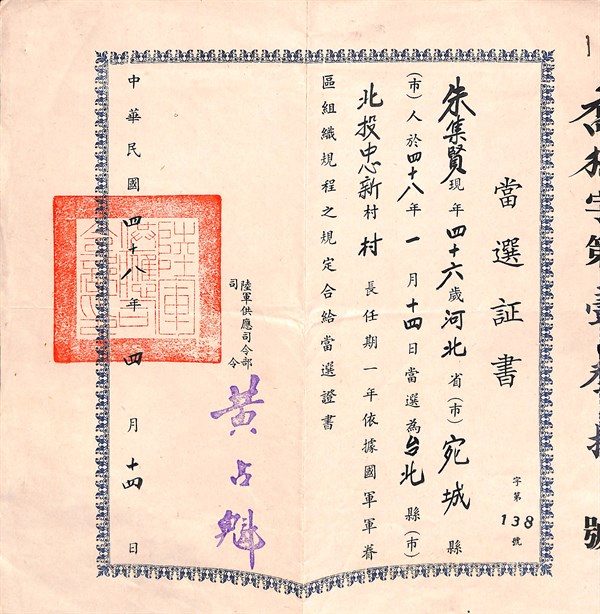 當選証書
字第138號
朱集賢現年四十六歲河北省(市)宛城縣
(市)人於四十八年一月十四日當選為台北縣(市)
北投忠新村村長任期一年依據國軍軍眷
區組織規程之規定合給當選證書
陸軍供應司令部
司令
黃占魁
中華民國四十八年四月十四日